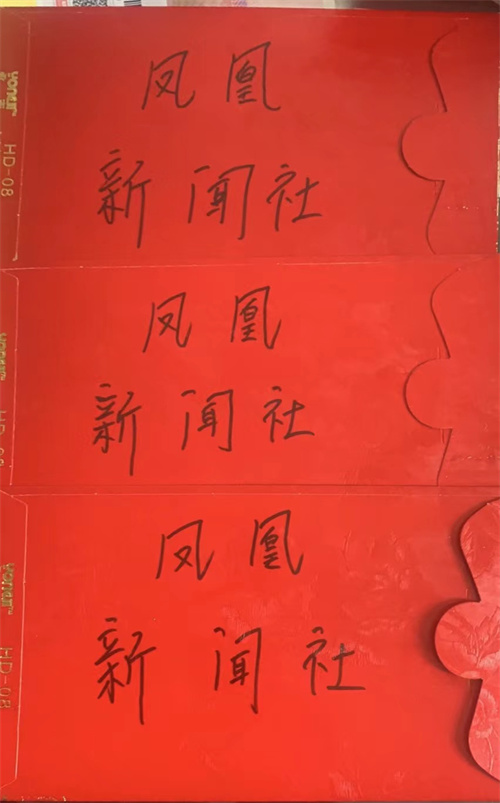 凤凰
新闻社
yonur
HD-08
凤凰
新闻社
凤凰
新闻社
yonur
HD-08